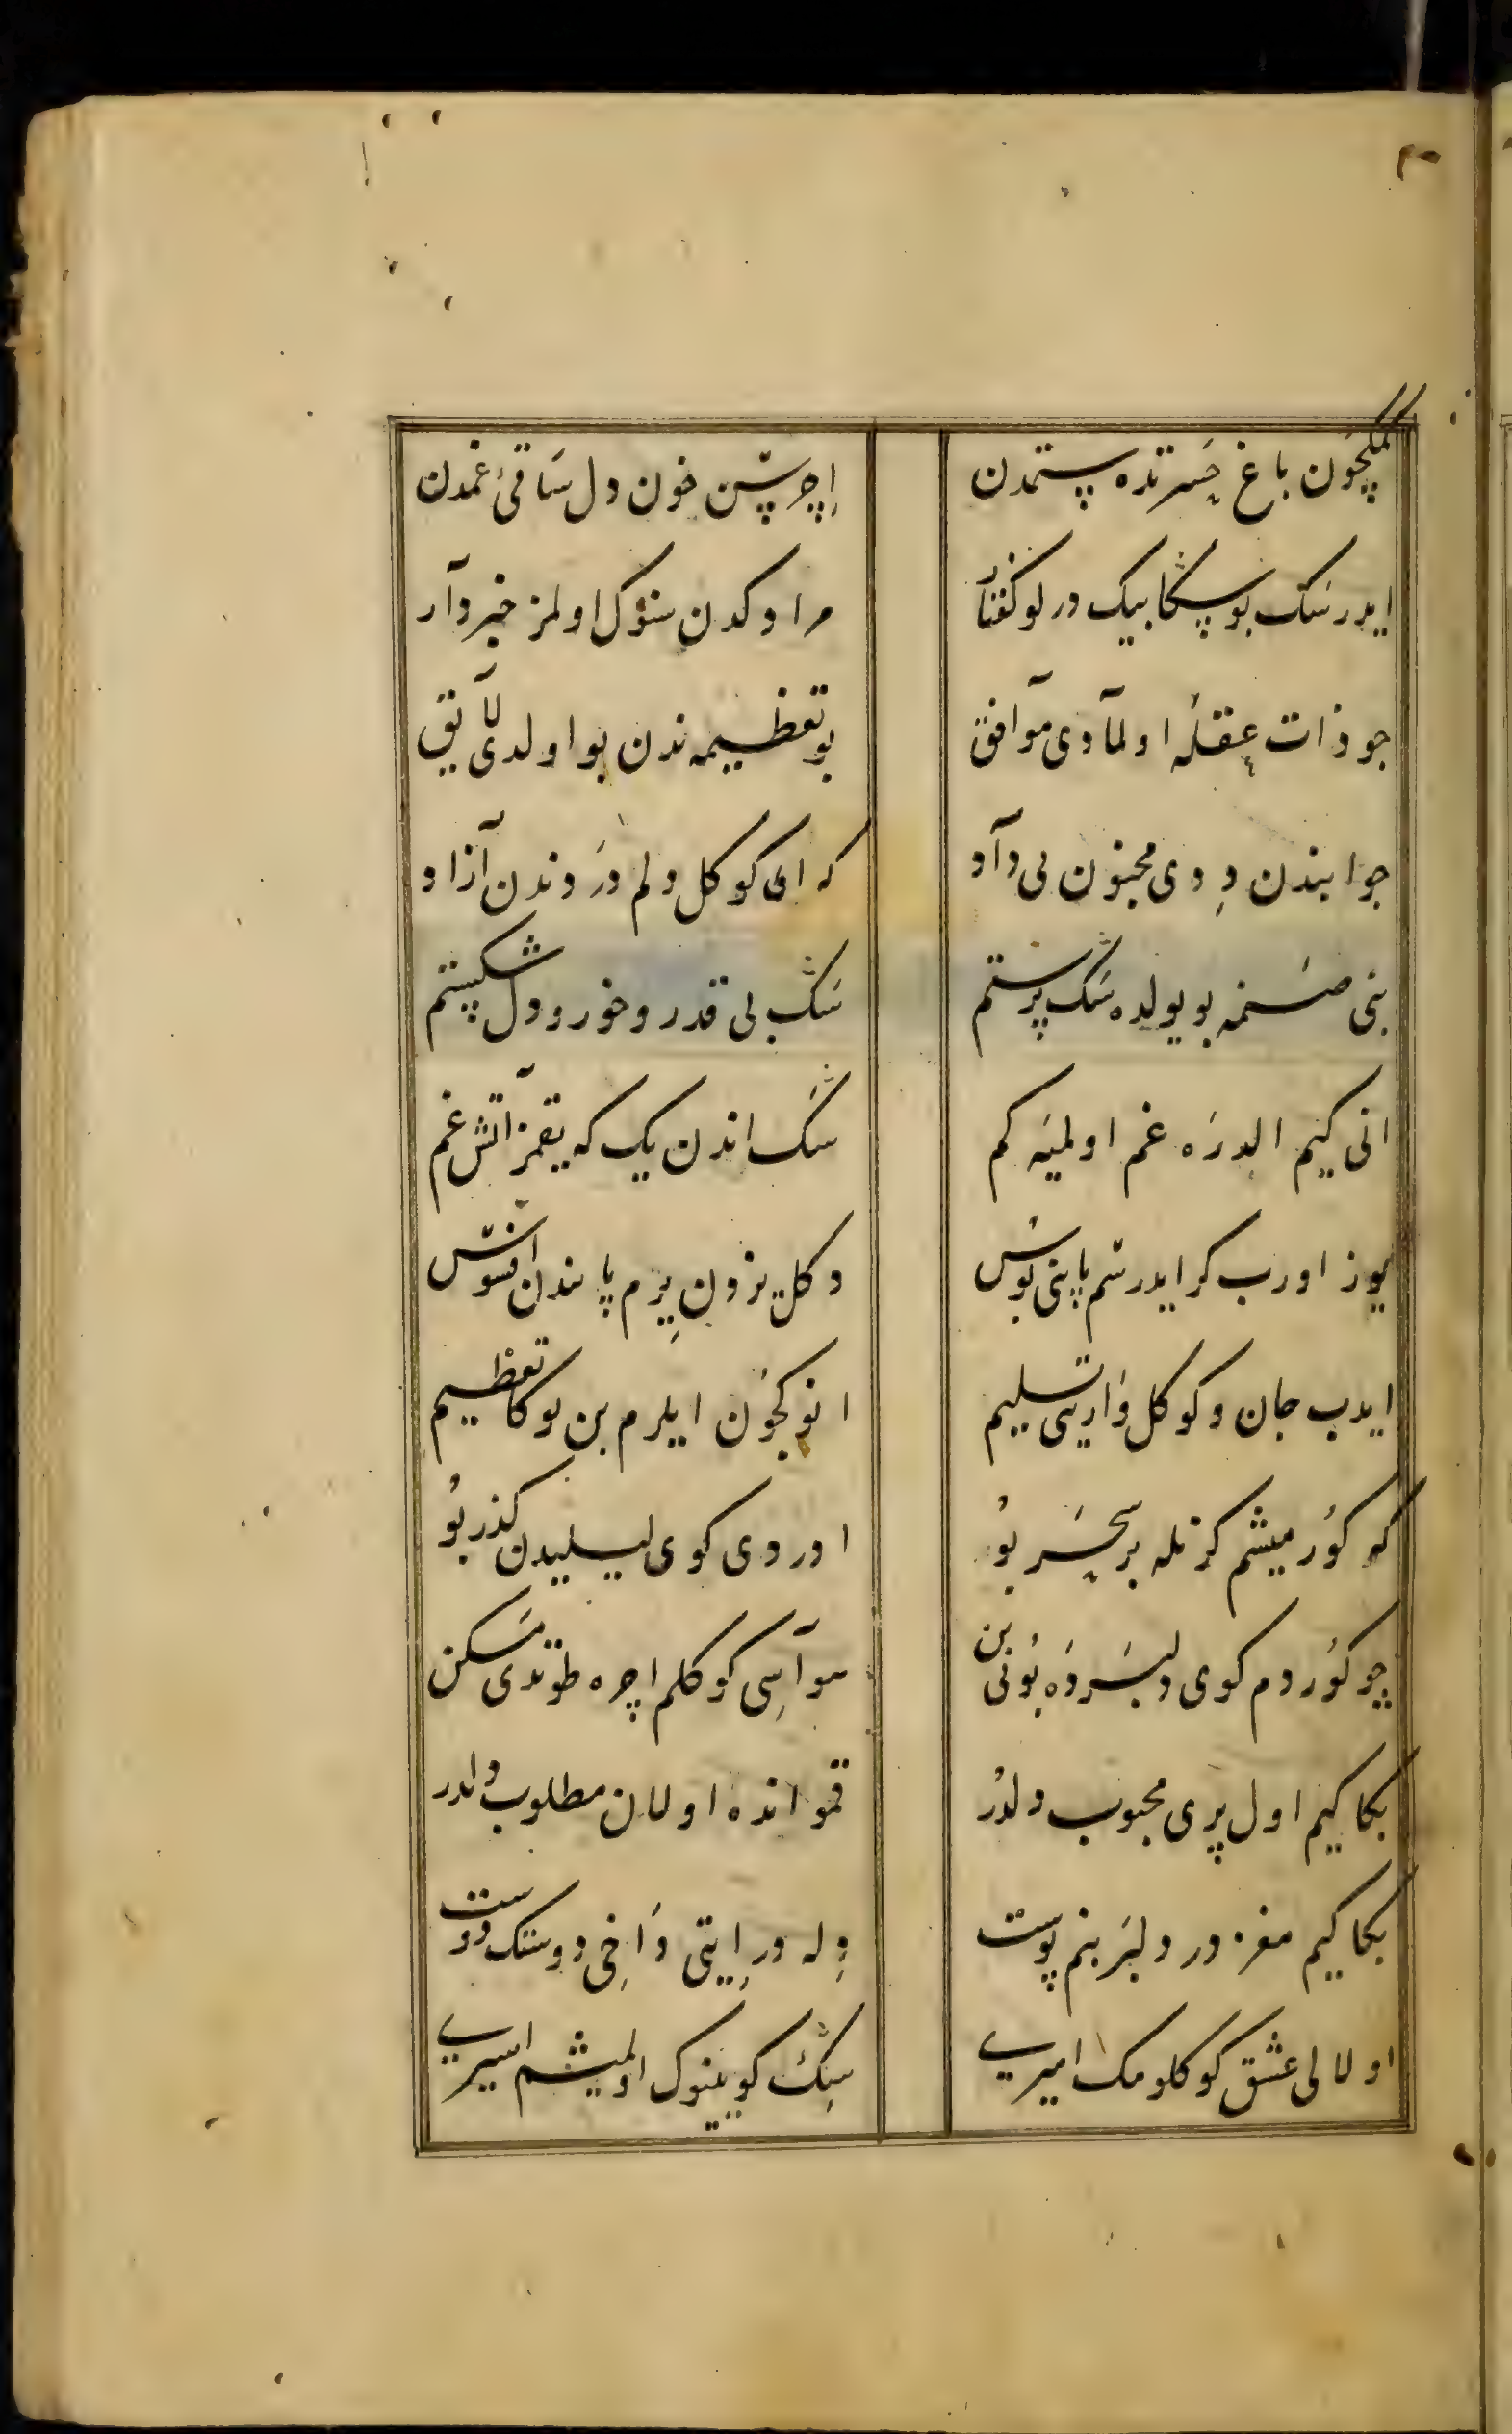 ۳۰
کمکچون باغ حسرتده ستمدن
ایچرسن خون دل ساقئ غمدن
ایدر سک بو سکا بیک درلو کفتار
مراوکدن سنوک اولمز خبردآر
جو ذات عقله اولمآدی موآفق
بو تعظیمه ندن بو اولدی لآیق
جوابندن ددی مجنون بی دآد
که ای کوکلی ولم دردندن آزاد
بنی صنمه بو یولده سک پرستم
سک بی قدر و خور و دل شکستم
انی کیم الدره غم اولمیه کم
سک اندن یک که یقمز آتش غم
یوز اورب کر ایدرسم پاینی بوس
دکل یزدن یرم پایندن افسوس
ایدب جان و کوکل وارینی تسلیم
انوکچون ایلرم بن بوکا تعظیم
که کورمیشم کزتله بر سحر بو
اوردی کوی لیلیدن کذر بو
چو کوردم کوی دلبرده بونی بن
سوآسی کوکلم اچره طوتدی مسکن
بکا کیم اول پری محبوب دلدر
قمو انده اولان مطلوب دلدر
بکا کیم مغز در دلبر بنم پوست
دله در ایتی داخی دوستک دوست
اولالی عشق کوکلومک امیری
سک کویینوک اولمیشم اسیری